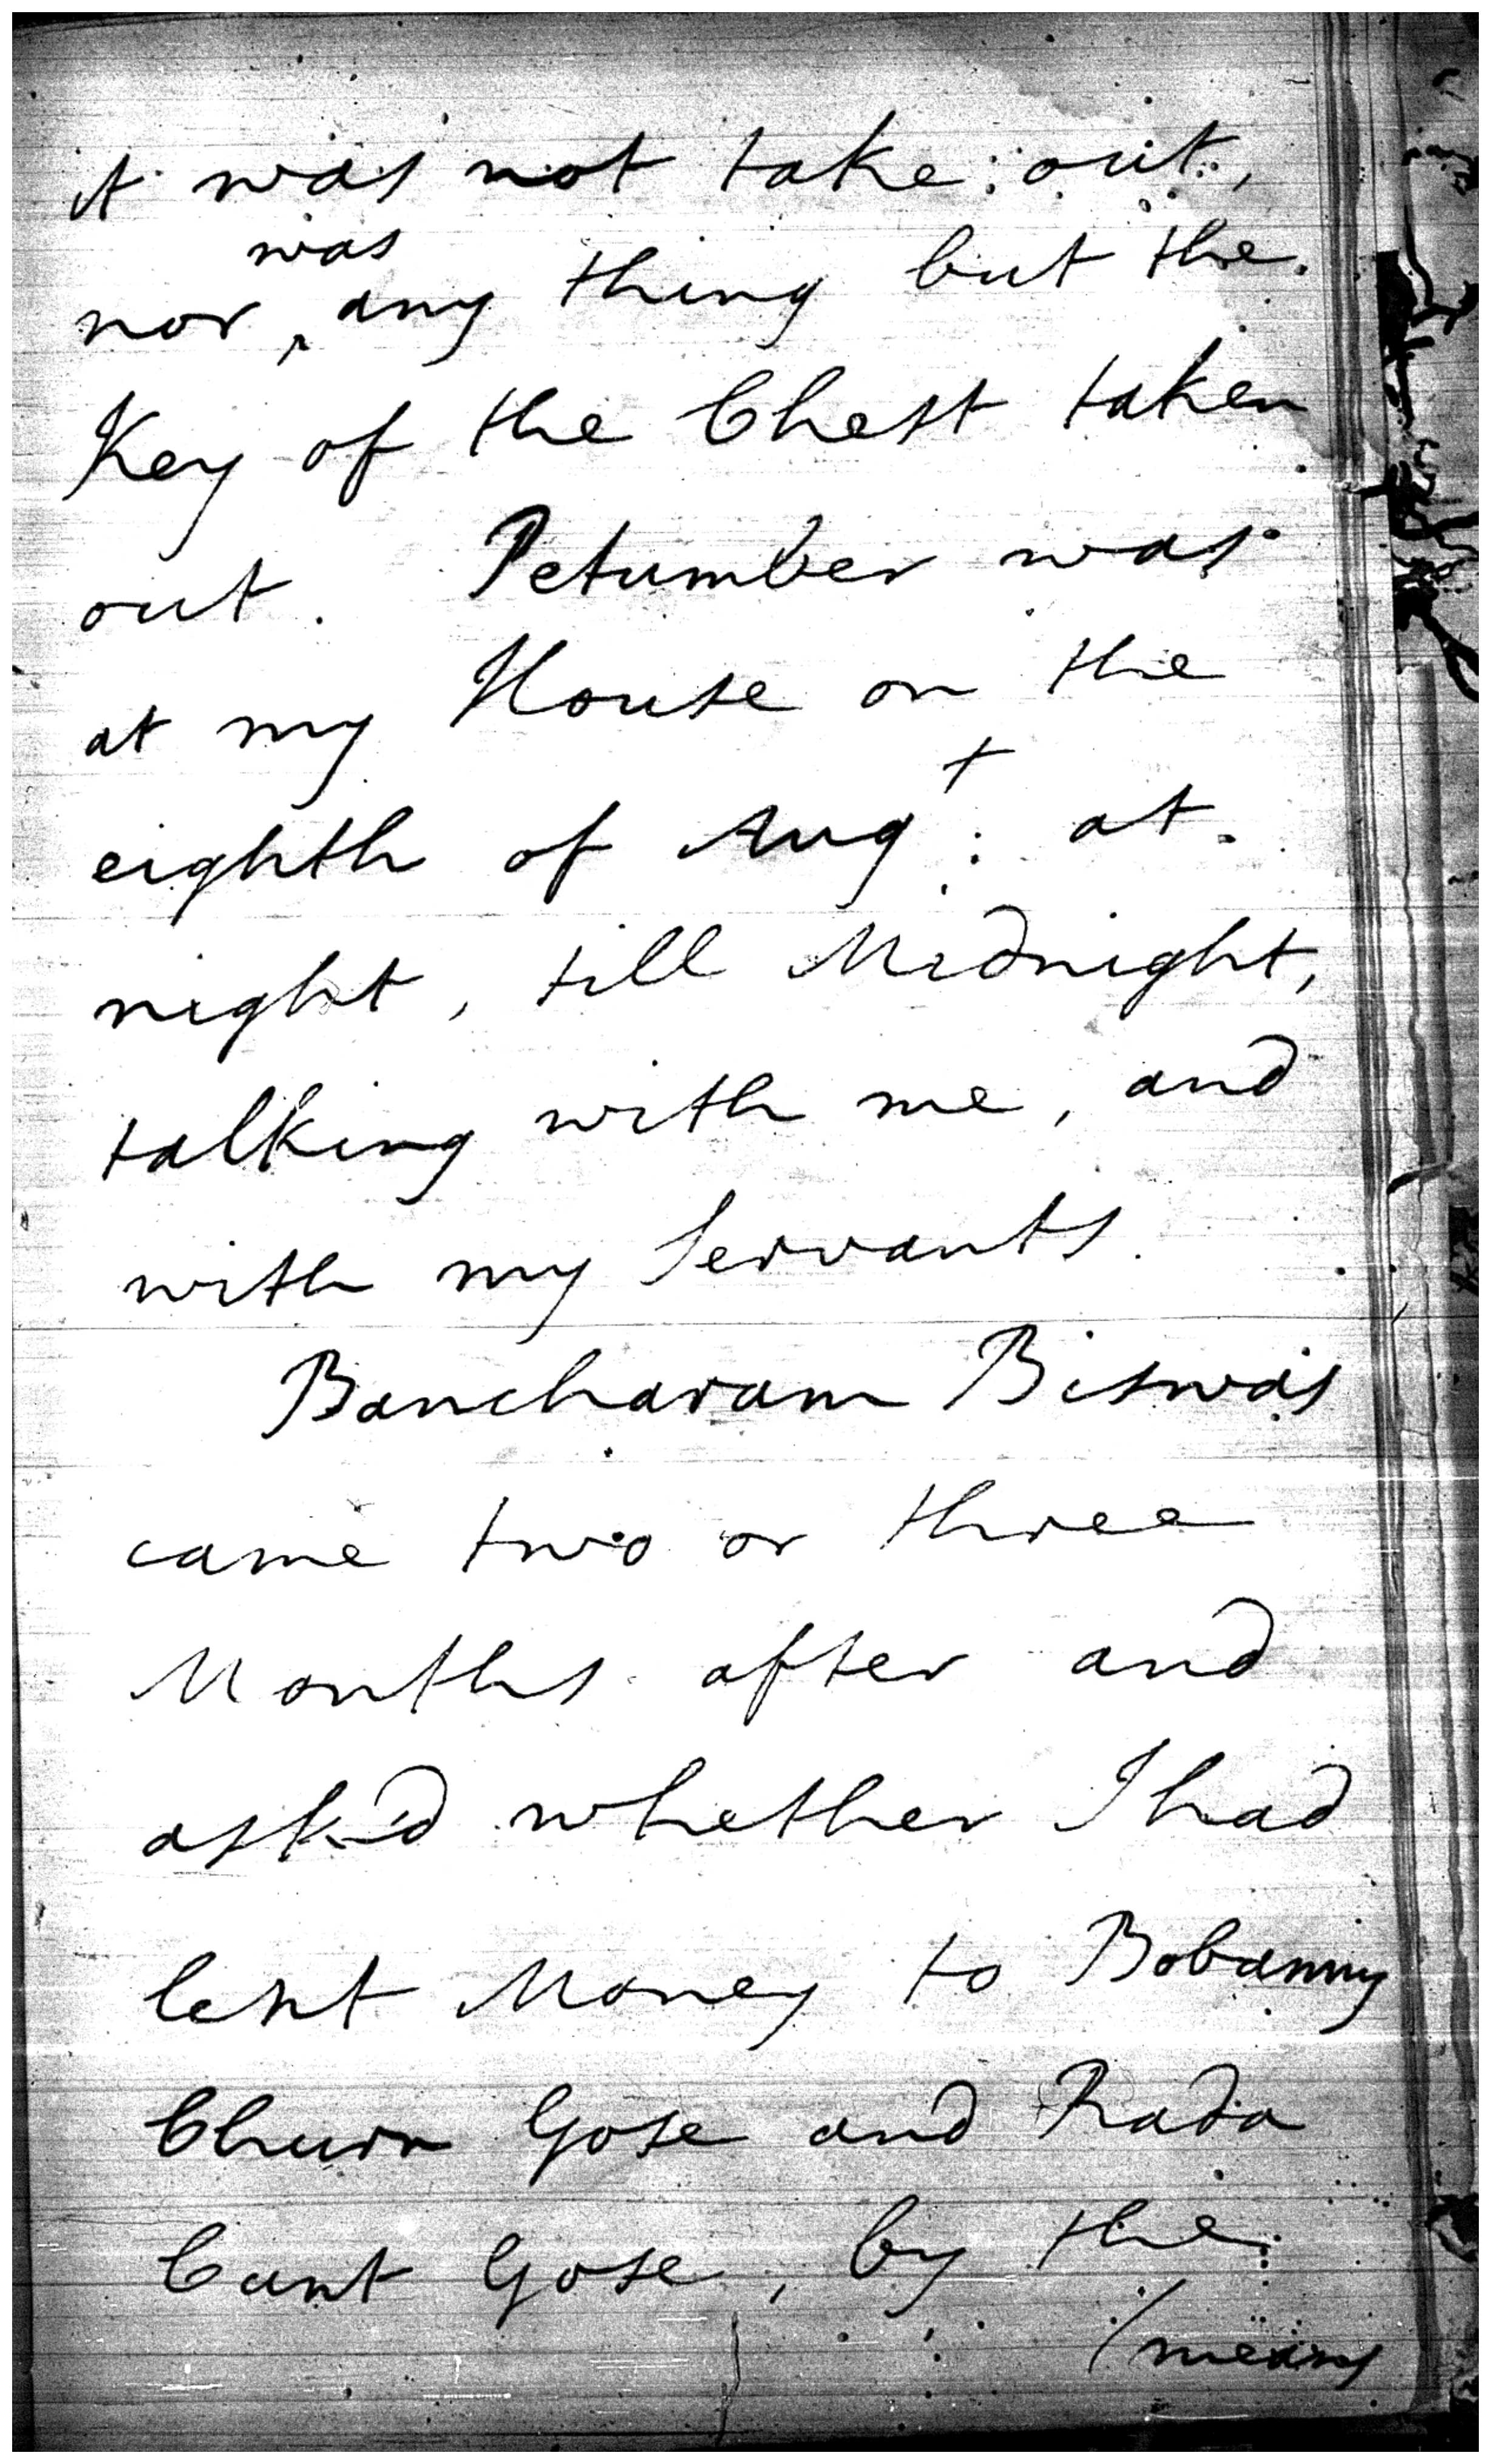 it was not take out,
nor ^was any thing but the
Key of the Chest taken
out. Petumber was
at my House on the
eighth of Augt. at
night, till Midnight,
talking with me, and
with my Servants.
Bancharam Biswas
came two or three
Months after and
ask'd whether I had
lent Money to Bobanny
Churn Gose and Rada
Cant Gose, by the
/means